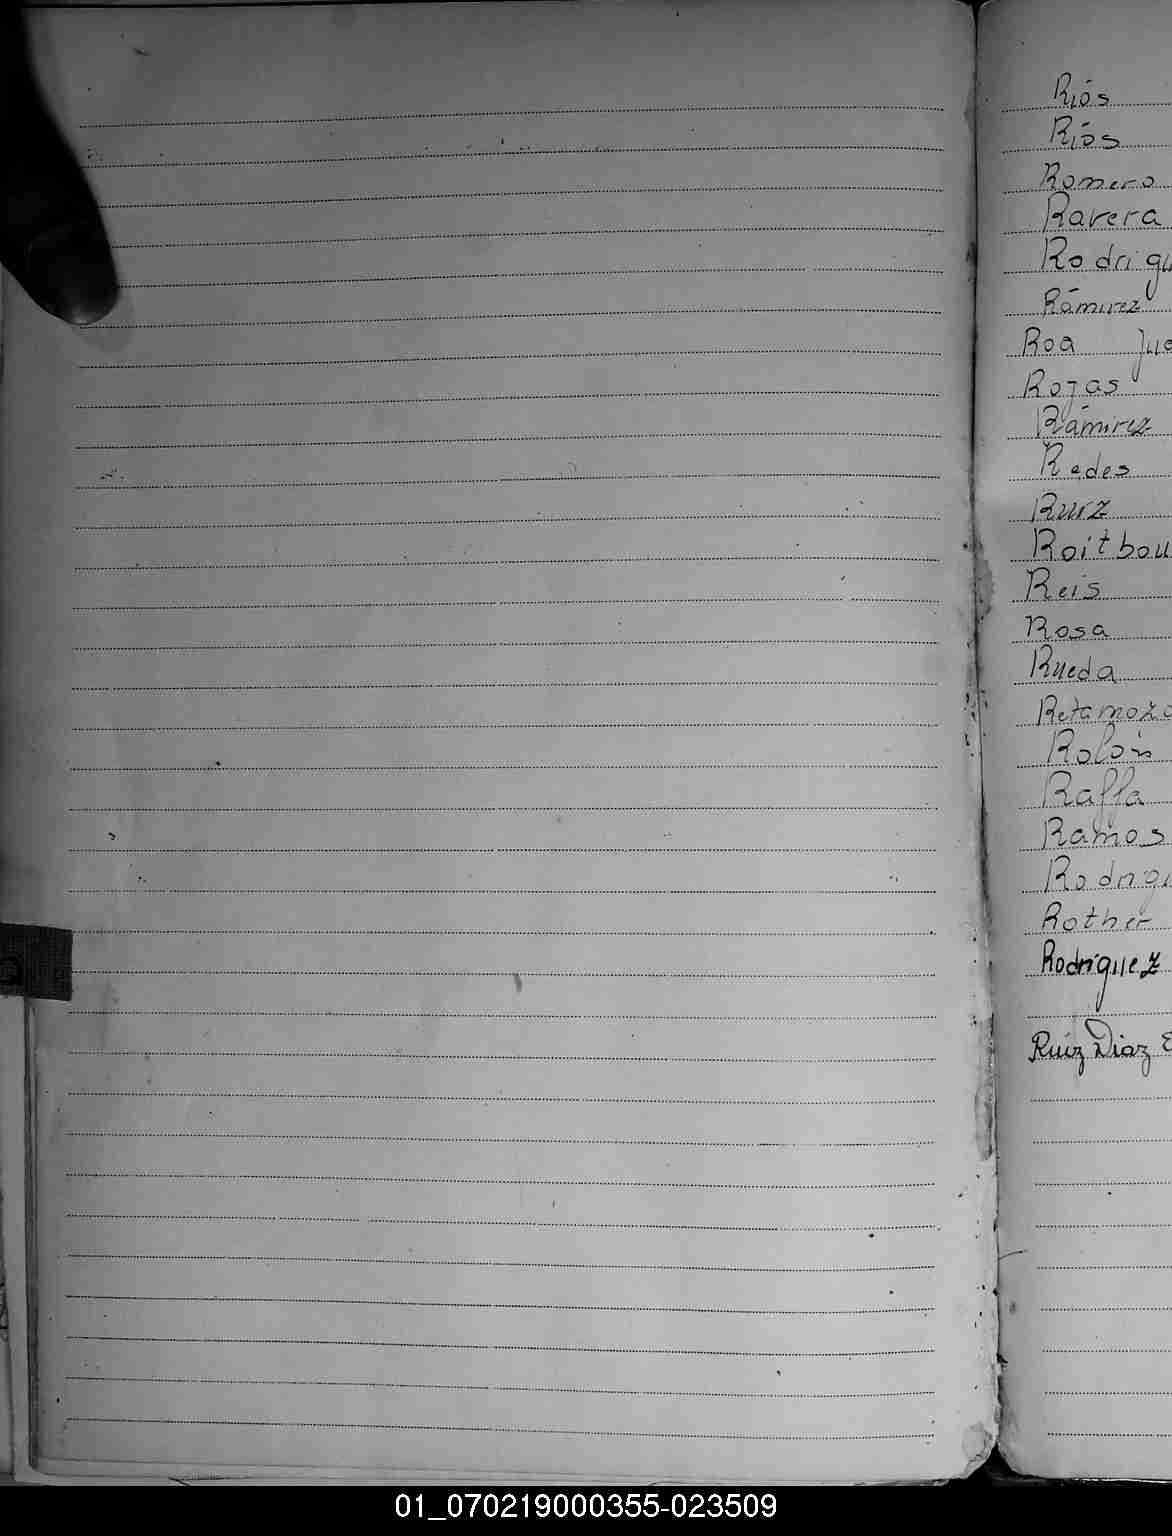 Riós
Riós
Romero
Ravera
Rodrigu
Rámirez
Roa Jua
Rojas
Rámirez
Redes
Ruiz
Roitbou
Reis
Rosa
Rueda
Retamozo
Rolón
Raffa
Ramos
Rodrigu
Rother
Rodríguez
Ruiz Diaz E
01_070219000355-023509